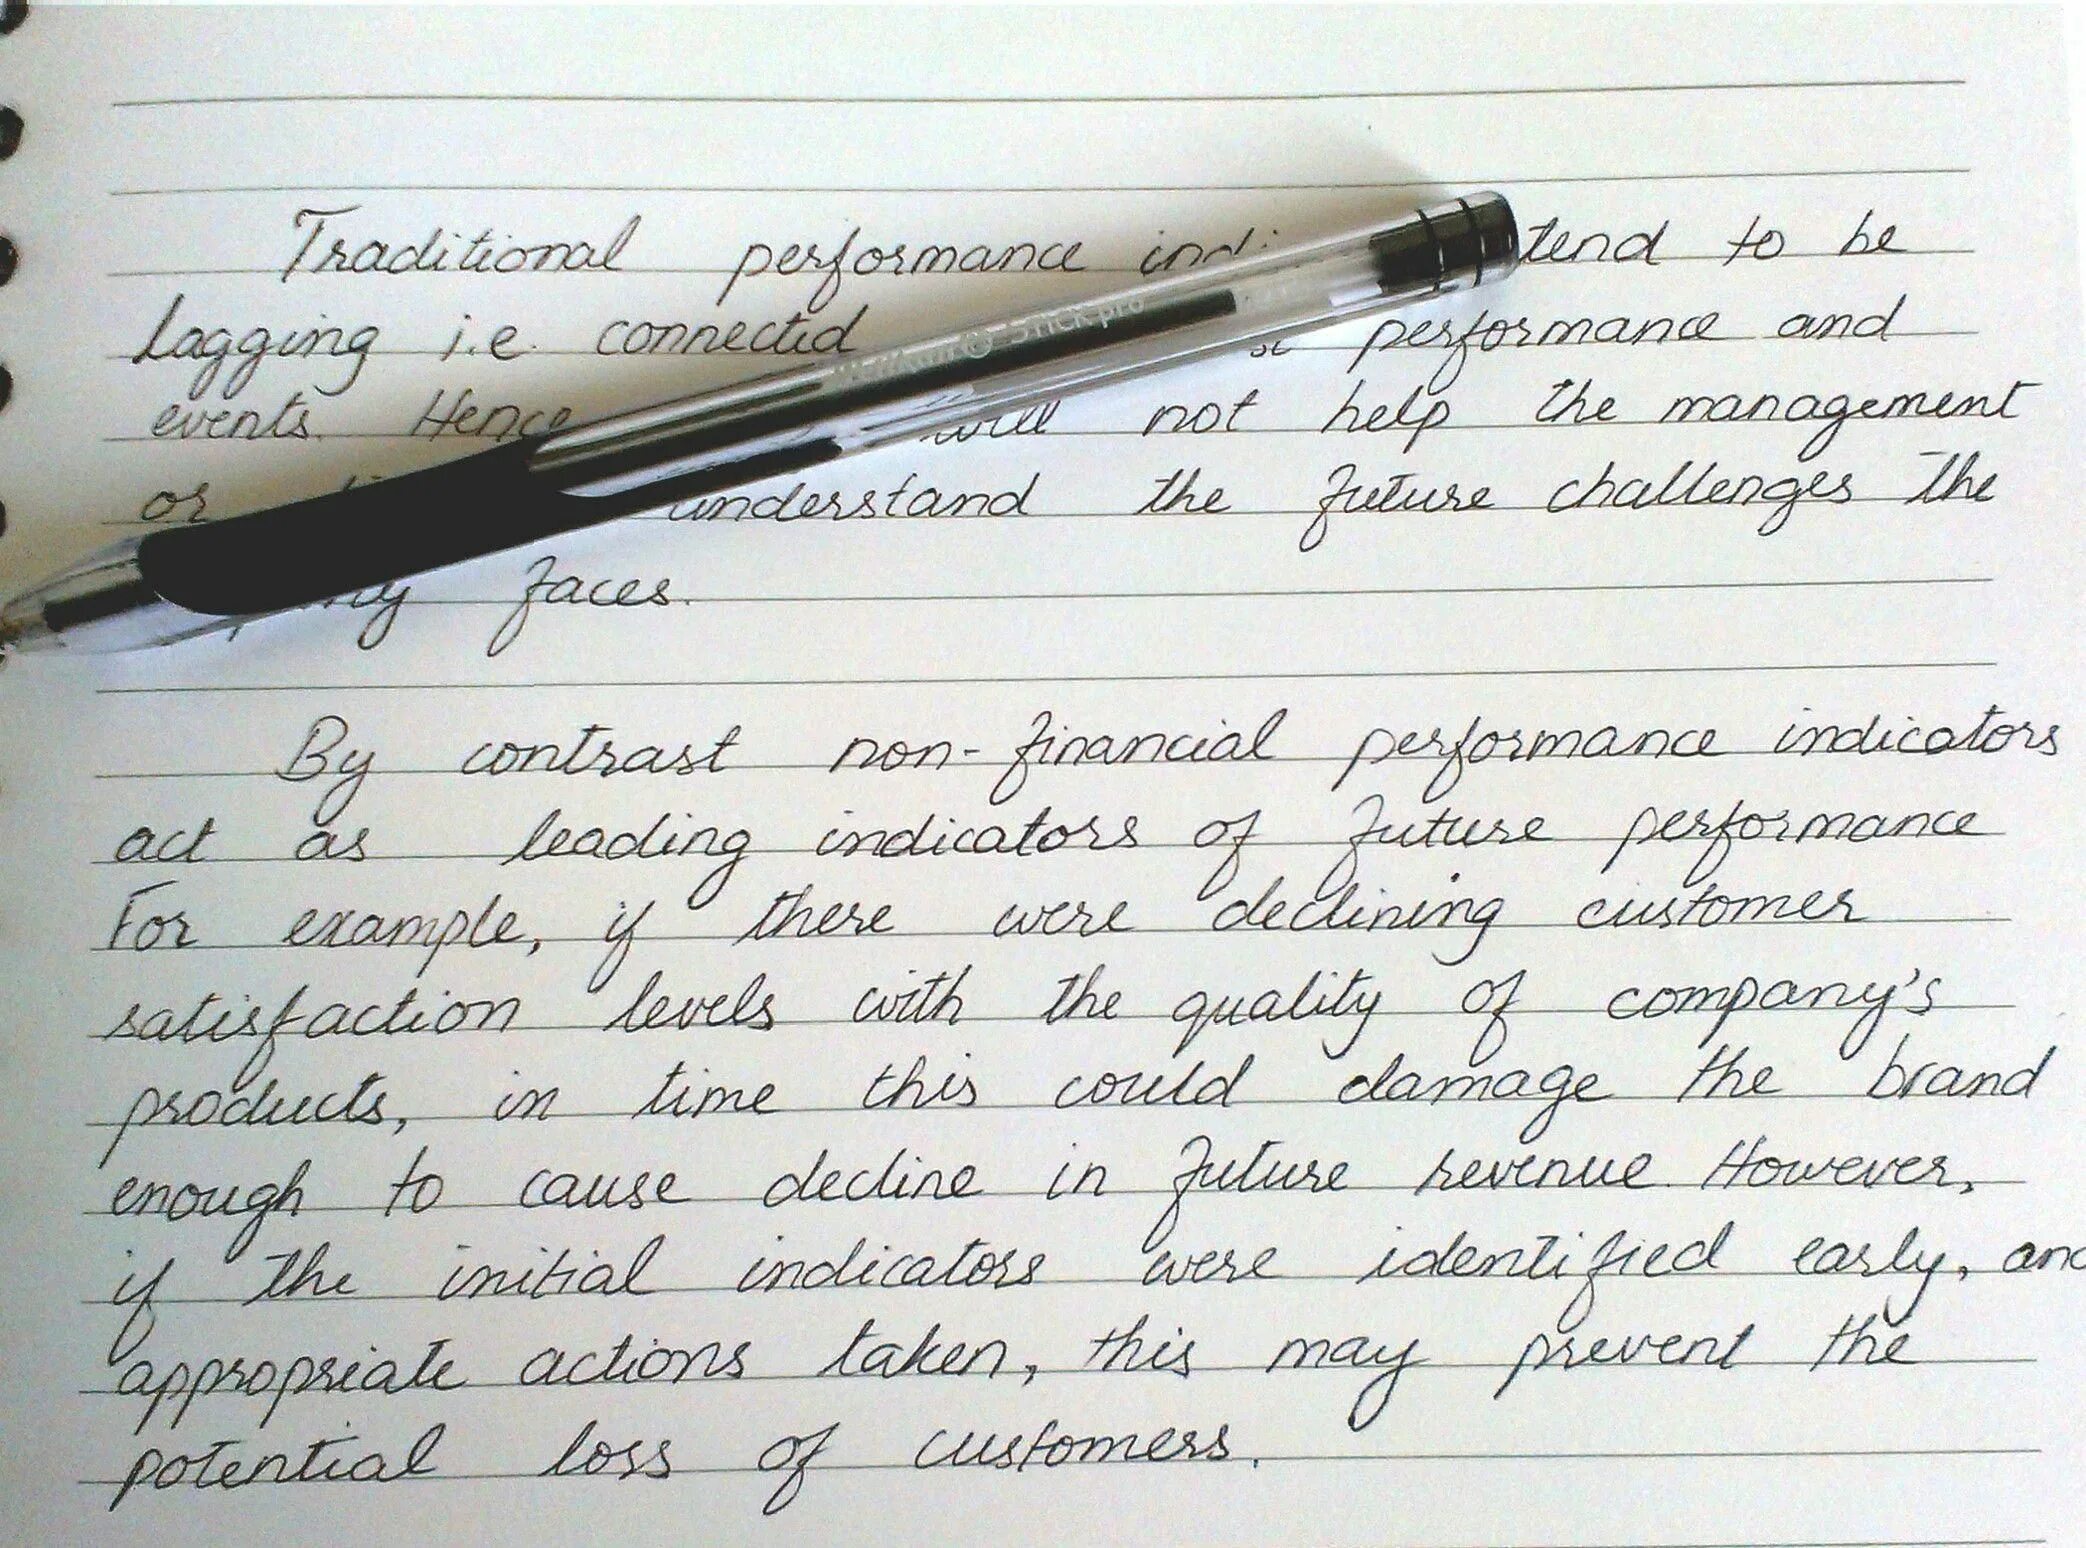 Traditional performance tend to be
lagging i.e. connected performance and
events. Hence will not help the management
or understand the future challenges the
faces.
By contrast non-financial performance indicators
act as leading indicators of future performance
For example, if there were declining customer
satisfaction levels with the quality of company's
products, in time this could damage the brand
enough to cause decline in future revenue. However,
if the initial indicators were identified early, and
appropriate actions taken, this may prevent the
potential loss of customers.
Stick pro